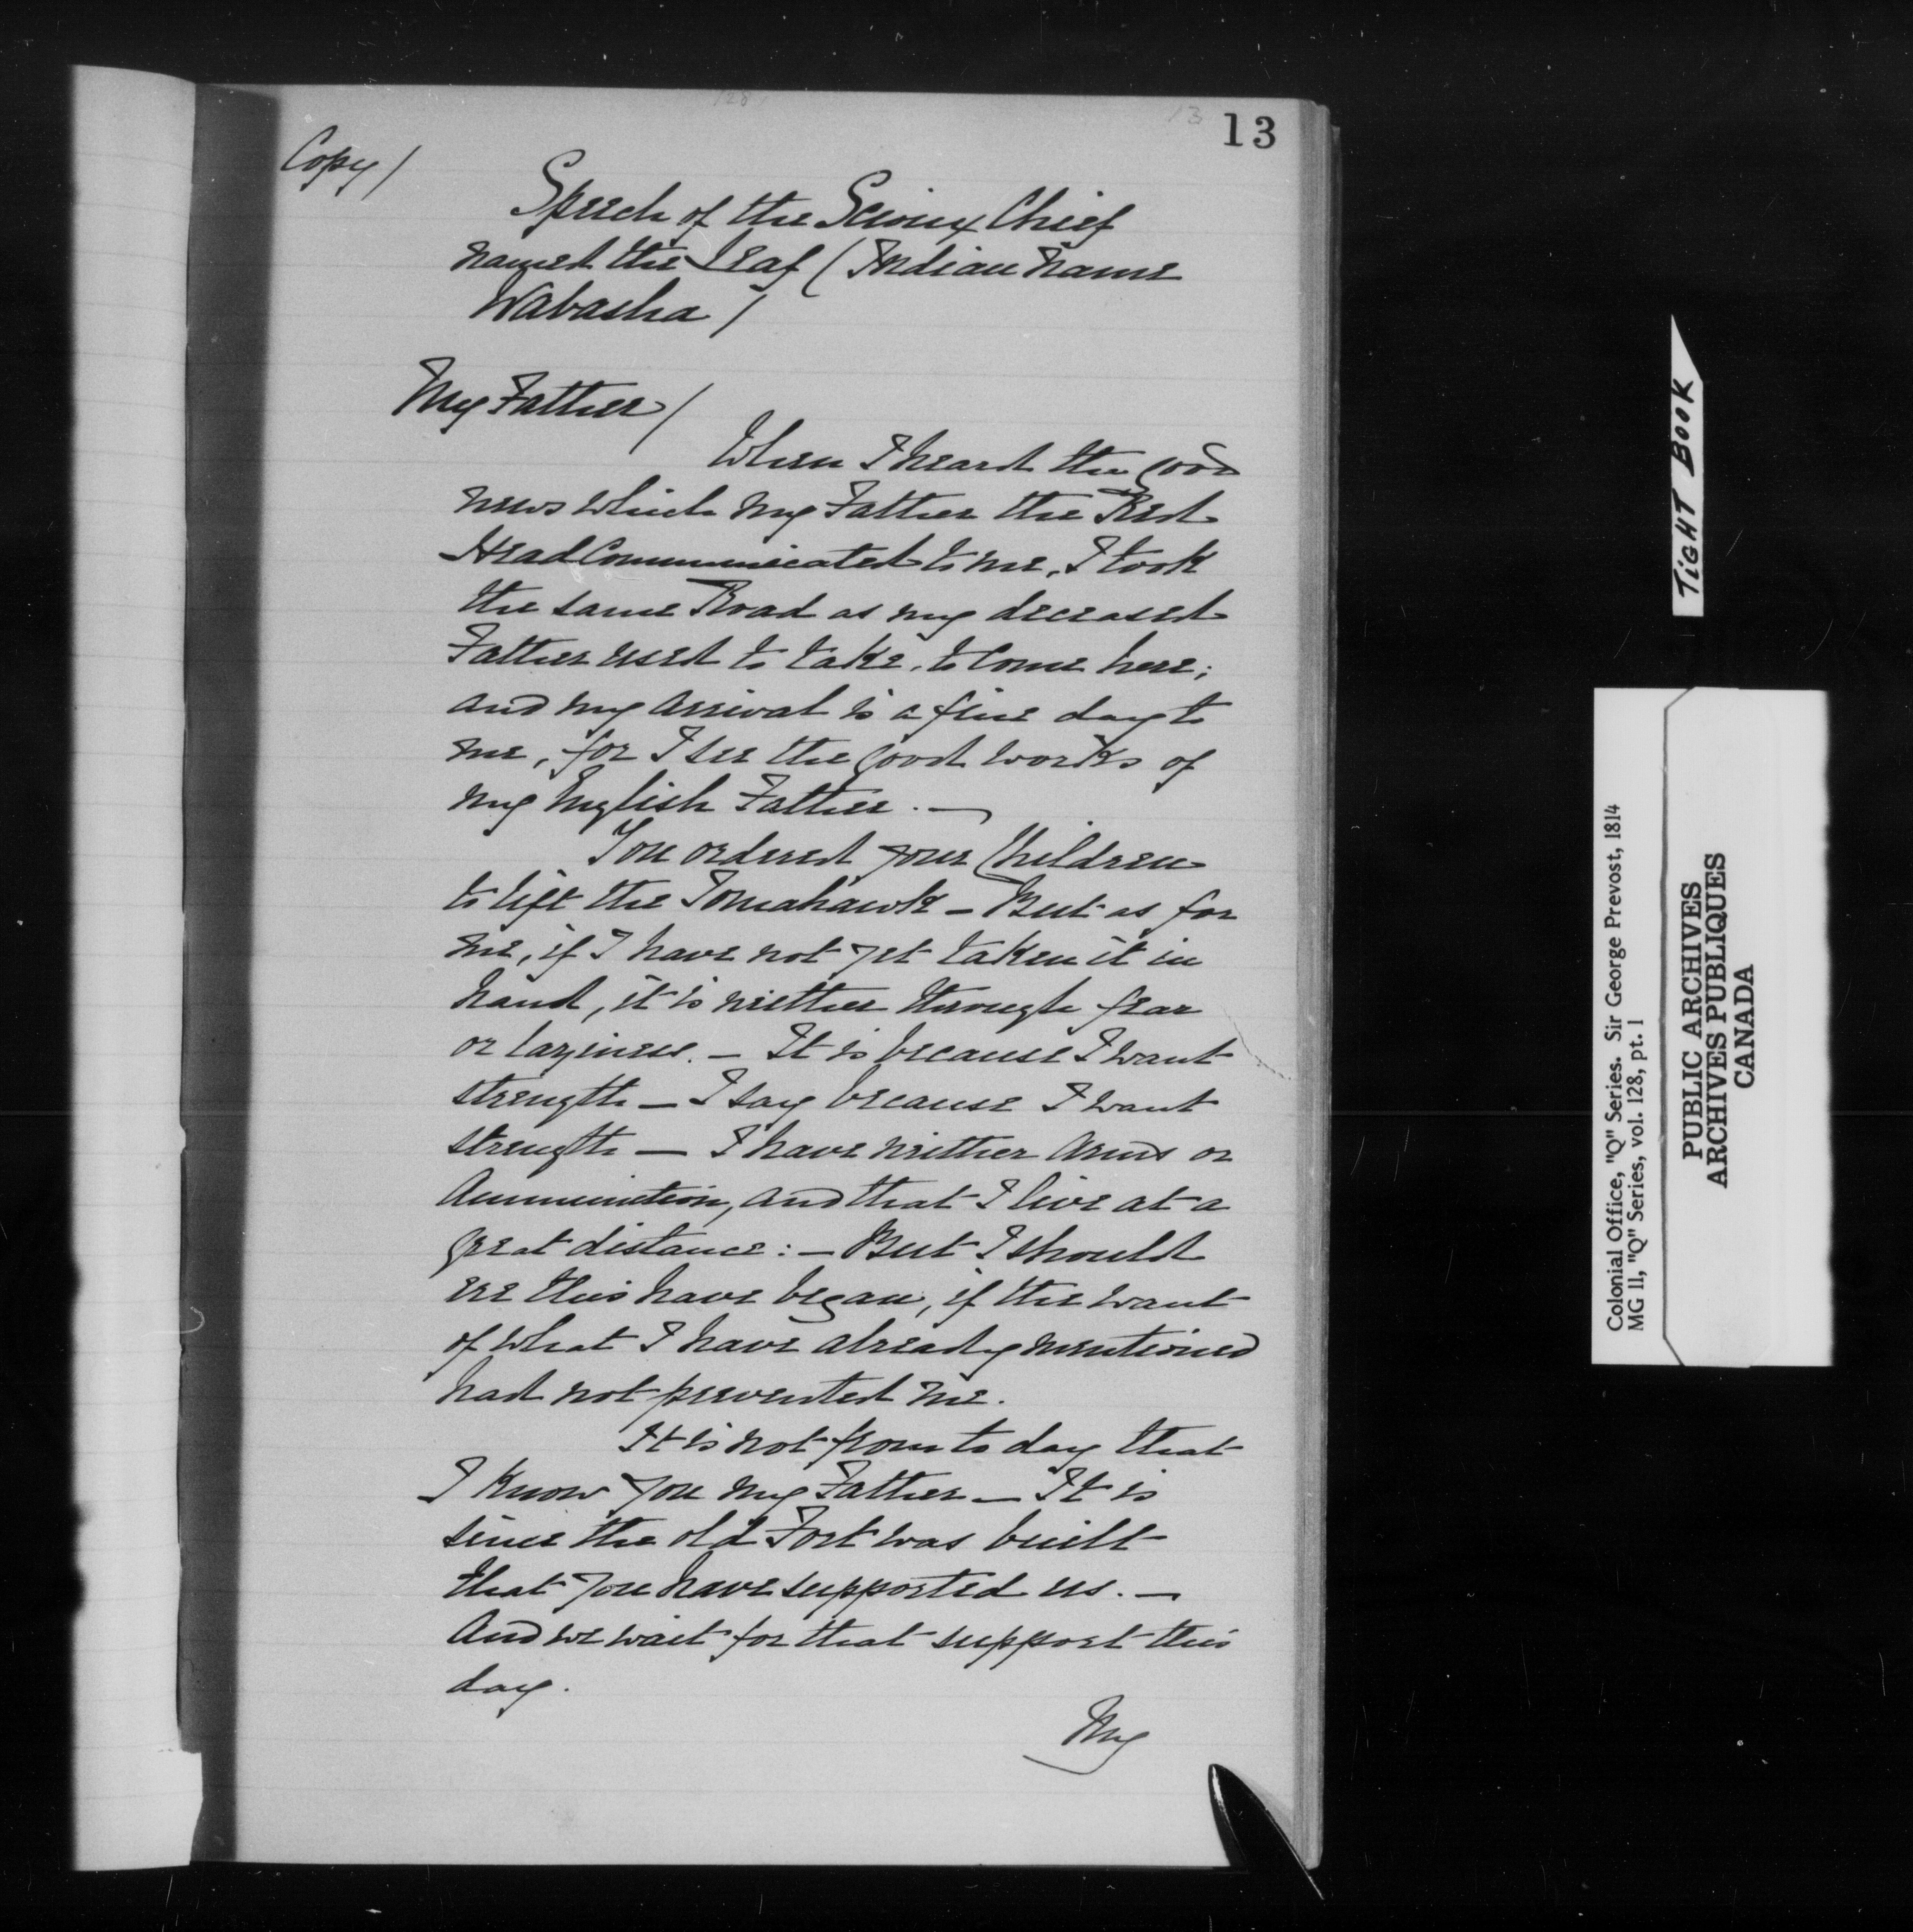 13
Copy/
Speech of the Scioux Chief
named the Leaf (Indian name
Wabasha /
My Father/
When I heard the good
news which my Father the Red
Head Communicated to me, I took
the same Road as my deceased
Father used to take, to come here;
and my arrival is a fine day to
me, for I see the good works of
my English Father. —
You ordered your Children
to lift the Tomahawk — But as for
me, if I have not yet taken it in
hand, it is neither through fear
or laziness. — It is because I want
strength — I say because I want
strength — I have neither Arms or
Ammunition, and that I live at a
great distance: — But I should
ere this have began, if the want
of what I have already mentioned
had not prevented me.
It is not from to day that
I know you my Father — It is
since the old Fort was built
that you have supported us. —
And we wait for that support this
day.
My
TIGHT BOOK
Colonial Office, "Q" Series. Sir George Prevost, 1814
MG 11, "Q" Series, vol. 128, pt. 1
PUBLIC ARCHIVES
ARCHIVES PUBLIQUES
CANADA